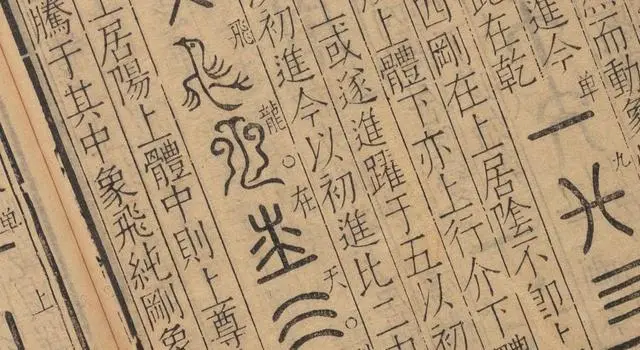 然而動象
進今
单
九
在乾
四剛在上居陰不即上
上體下亦上行介下體
上或遂進躍于五以初
初進今以初進比二中
飛龍。在天。
上居陽上體中則上尊
騰于其中象飛純剛象
单
上